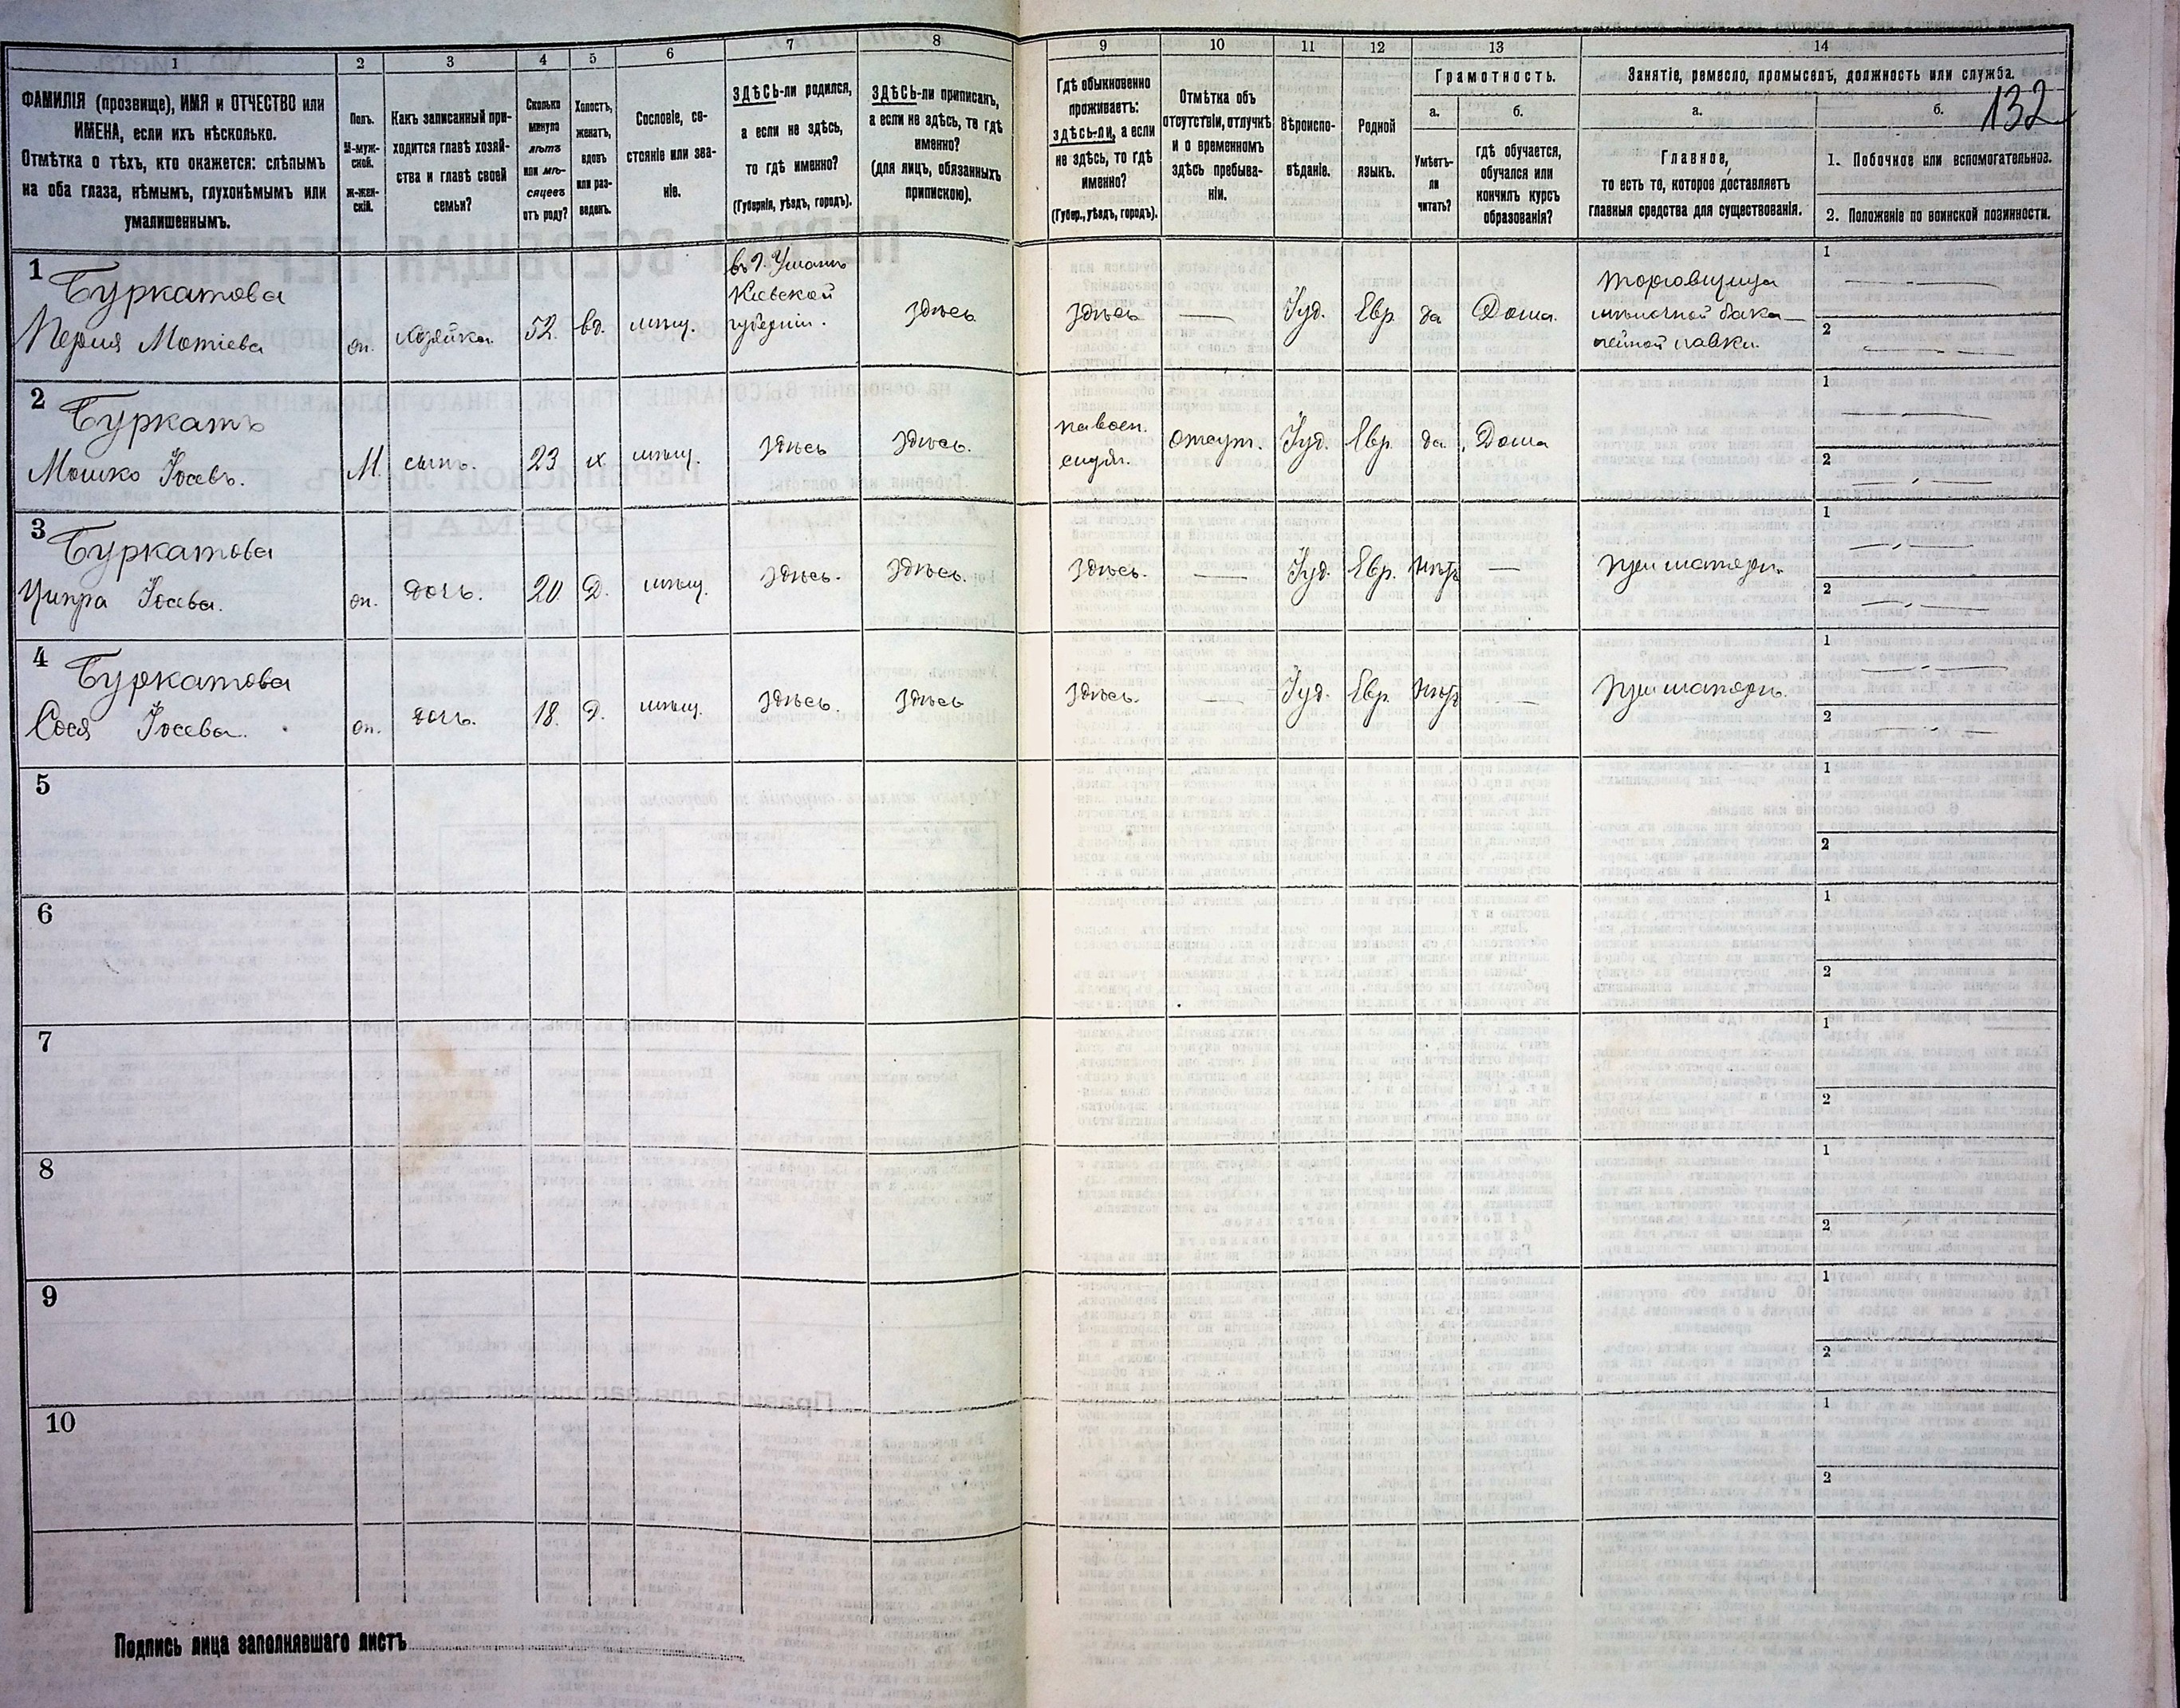 1
2
3
4
5
6
7
8
9
10
11
12
13
14
ФАМИЛІЯ (прозвище), ИМЯ и ОТЧЕСТВО или
ИМЕНА, если ихъ нѣсколько.
Отмѣтка о тѣхъ, кто окажется: слѣпымъ
на оба глаза, нѣмымъ, глухонѣмымъ или
умалишеннымъ.
Полъ.
М-муж-
ской.
Ж-жен-
скій.
Какъ записанный при-
ходится главѣ хозяй-
ства и главѣ своей
семьи?
Сколько
минуло
лѣтъ
или мѣ-
сяцевъ
отъ роду?
Холостъ,
женатъ,
вдовъ
или раз-
веденъ.
Сословіе, со-
стояніе или зва-
ніе.
ЗДѢСЬ-ли родился,
а если не здѣсь,
то гдѣ именно?
(Губернія, уѣздъ, городъ).
ЗДѢСЬ-ли приписанъ,
а если не здѣсь, то гдѣ
именно?
(для лицъ, обязанныхъ
припискою).
Гдѣ обыкновенно
проживаетъ:
здѣсь-ли, а если
не здѣсь, то гдѣ
именно?
(Губер., уѣздъ, городъ).
Отмѣтка объ
отсутствіи, отлучкѣ
и о временномъ
здѣсь пребыва-
ніи.
Вѣроиспо-
вѣданіе.
Родной
языкъ.
Грамотность.
а.
б.
Умѣетъ-
ли
читать?
гдѣ обучается,
обучался или
кончилъ курсъ
образованія?
Занятіе, ремесло, промыселъ, должность или служба.
132
а.
б.
Главное,
то есть то, которое доставляетъ
главныя средства для существованія.
1. Побочное или вспомогательное.
2. Положеніе по воинской повинности.
1
Буркатова
Перля Мотіева
хозяйка
52.
вд.
мѣщ.
въ г. Умань
Кіевской
губерніи.
здѣсь
здѣсь
—
Іуд.
Евр.
да
Дома.
торговщица
мѣлочной бака—
лейной лавки.
1
2
2
Буркатъ
Мошко Іосевъ.
М.
сынъ.
23
х.
мѣщ.
здѣсь
здѣсь.
отсут.
Іуд.
Евр.
да
Дома
1
2
3
Буркатова
Ципра Іосева.
дочь.
20
Д.
мѣщ.
здѣсь.
здѣсь.
здѣсь.
—
Іуд.
Евр.
нѣтъ
—
при матери.
1
2
4
Буркатова
Сося Іосева.
дочь.
18.
Д.
мѣщ.
здѣсь.
здѣсь
здѣсь.
—
Іуд.
Евр.
нѣтъ
—
при матери.
1
2
5
1
2
6
1
2
7
1
2
8
1
2
9
1
2
10
1
2
Подпись лица заполнявшаго листъ